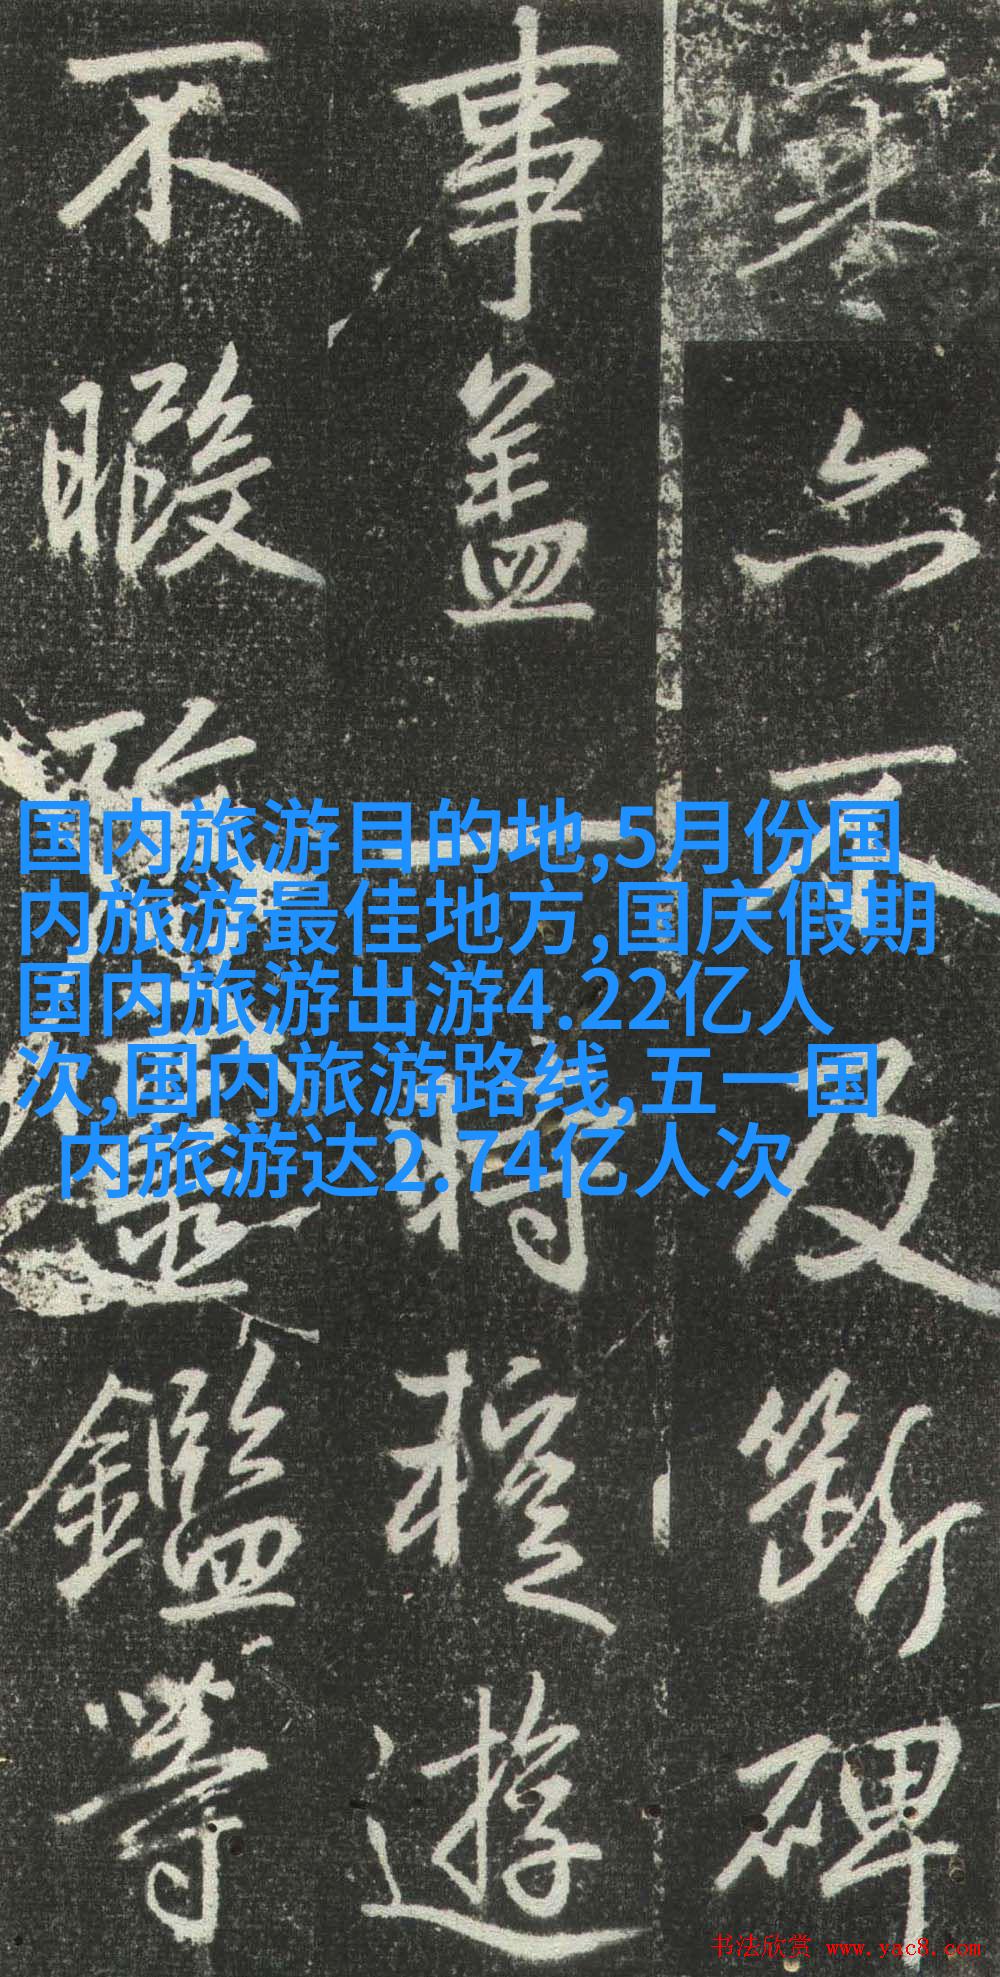 亦不及断碑
事盖一時遊
不暇鑑等
国内旅游目的地,5月份国
内旅游最佳地方,国庆假期
国内旅游出游4.22亿人
次,国内旅游路线,五一国
内旅游达2.74亿人次
书法欣赏 www.yac8.com